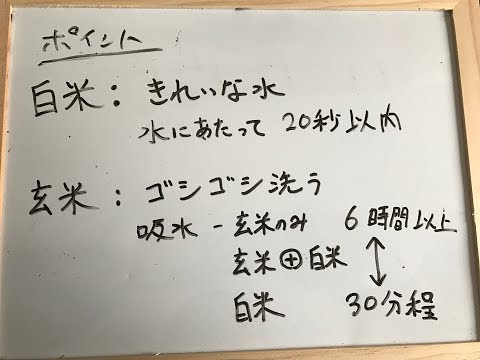 ポイント
白米：きれいな水
水にあたって 20秒以内
玄米：ゴシゴシ洗う
吸水 - 玄米のみ 6時間以上
玄米⊕白米 ↕
白米 30分程